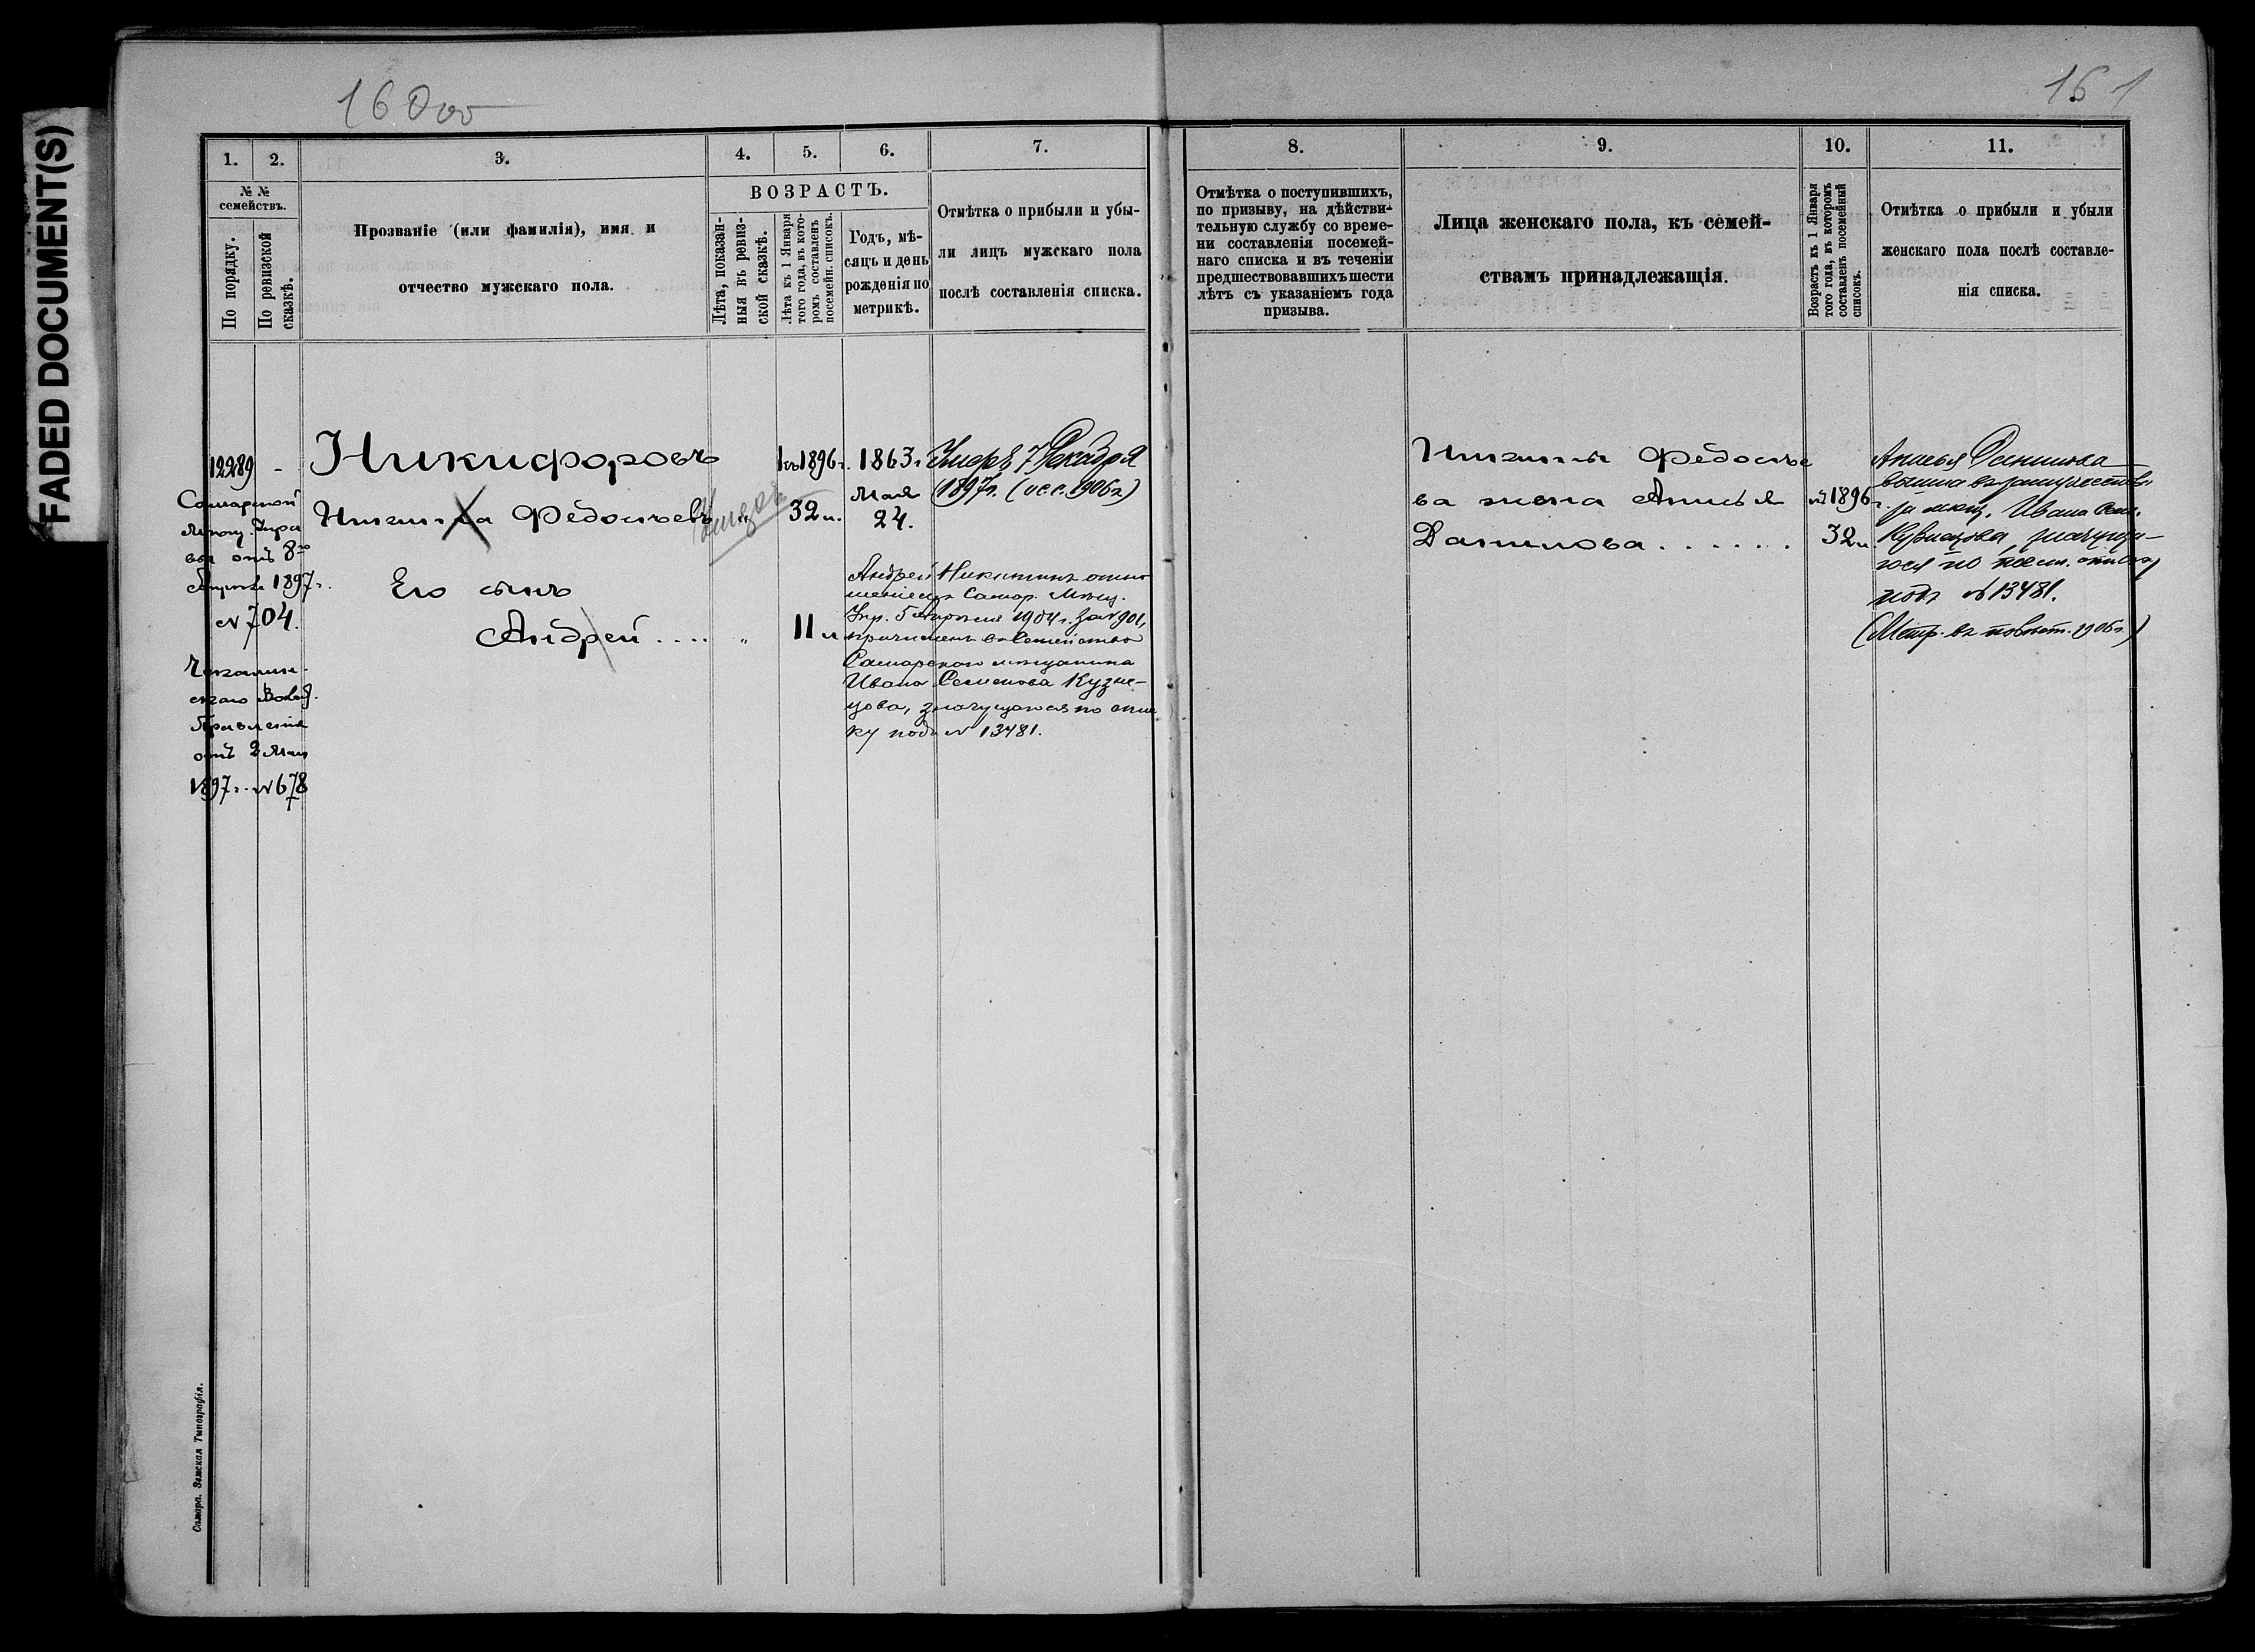 FADED DOCUMENT(S)
160об
161
1.
2.
3.
4.
5.
6.
7.
8.
9.
10.
11.
№ №
семействъ.
По порядку.
По ревизской
сказкѣ.
Прозваніе (или фамилія), имя и
отчество мужскаго пола.
ВОЗРАСТЪ.
Лѣта, показан-
ныя въ ревиз-
ской сказкѣ.
Лѣта къ 1 Января
того года, въ кото-
ромъ составленъ
посемейн. списокъ.
Годъ, мѣ-
сяцъ и день
рожденія по
метрикѣ.
Отмѣтка о прибыли и убы-
ли лицъ мужскаго пола
послѣ составленія списка.
Отмѣтка о поступившихъ,
по призыву, на дѣйстви-
тельную службу со време-
ни составленія посемей-
наго списка и въ теченіи
предшествовавшихъ шести
лѣтъ съ указаніемъ года
призыва.
Лица женскаго пола, къ семей-
ствамъ принадлежащія.
Возрастъ къ 1 Января
того года, въ которомъ
составленъ посемейный
списокъ.
Отмѣтка о прибыли и убыли
женскаго пола послѣ составле-
нія списка.
12289 -
Самарской
Мѣщ. Упра
вы отъ 8го
1897г.
№ 704.
Правленія
отъ 2 Мая
1897г. №678
Никифоровъ
Никита Федосѣевъ
Его сынъ
Андрей . . . .
"
"
1896г.
32 л.
11 л.
1863 г.
Мая
24.
Умеръ 7 Декабря
1897г. (исс. 1906г)
Андрей Никитинъ отно
шеніемъ Самар. Мѣщ.
Упр. 5 Апрѣля 1904г. за №901,
причисленъ въ семейство
Самарскаго мѣщанина
Ивана Семенова Кузне-
цова, значущагося по спи
ску подъ № 13481.
Никиты Федосѣе
ва жена Анисья
Данилова . . . . . .
1896г.
32 л.
Анисья Данилова
вышла въ замужество
за мѣщ. Ивана Сем.
Кузнецова, значуща-
гося по посем. списку
подъ №13481.
(Метр. въ 1906г.)
Самара. Земская Типографія.